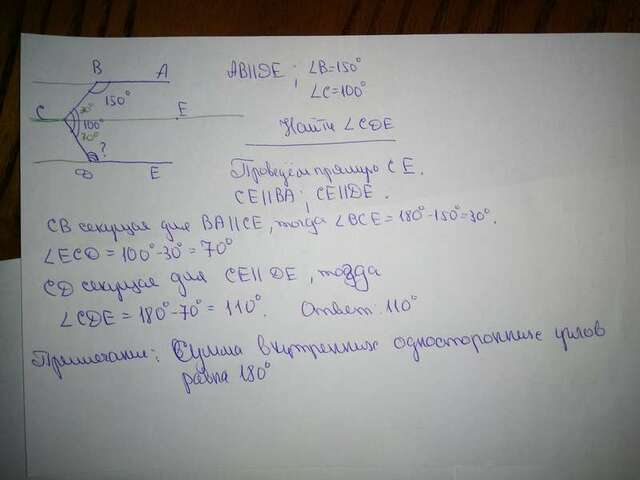 B A
150°
C 30° E
100°
70°
?
D E
AB||DE ; ∠B=150°
∠C=100°
Найти ∠CDE
Проведём прямую CE.
CE||BA ; CE||DE.
CB секущая для BA||CE, тогда ∠BCE = 180°-150°=30°.
∠ECD = 100°-30° = 70°
CD секущая для CE||DE, тогда
∠CDE = 180°-70° = 110°. Ответ: 110°
Примечание: Сумма внутренних односторонних углов
равна 180°